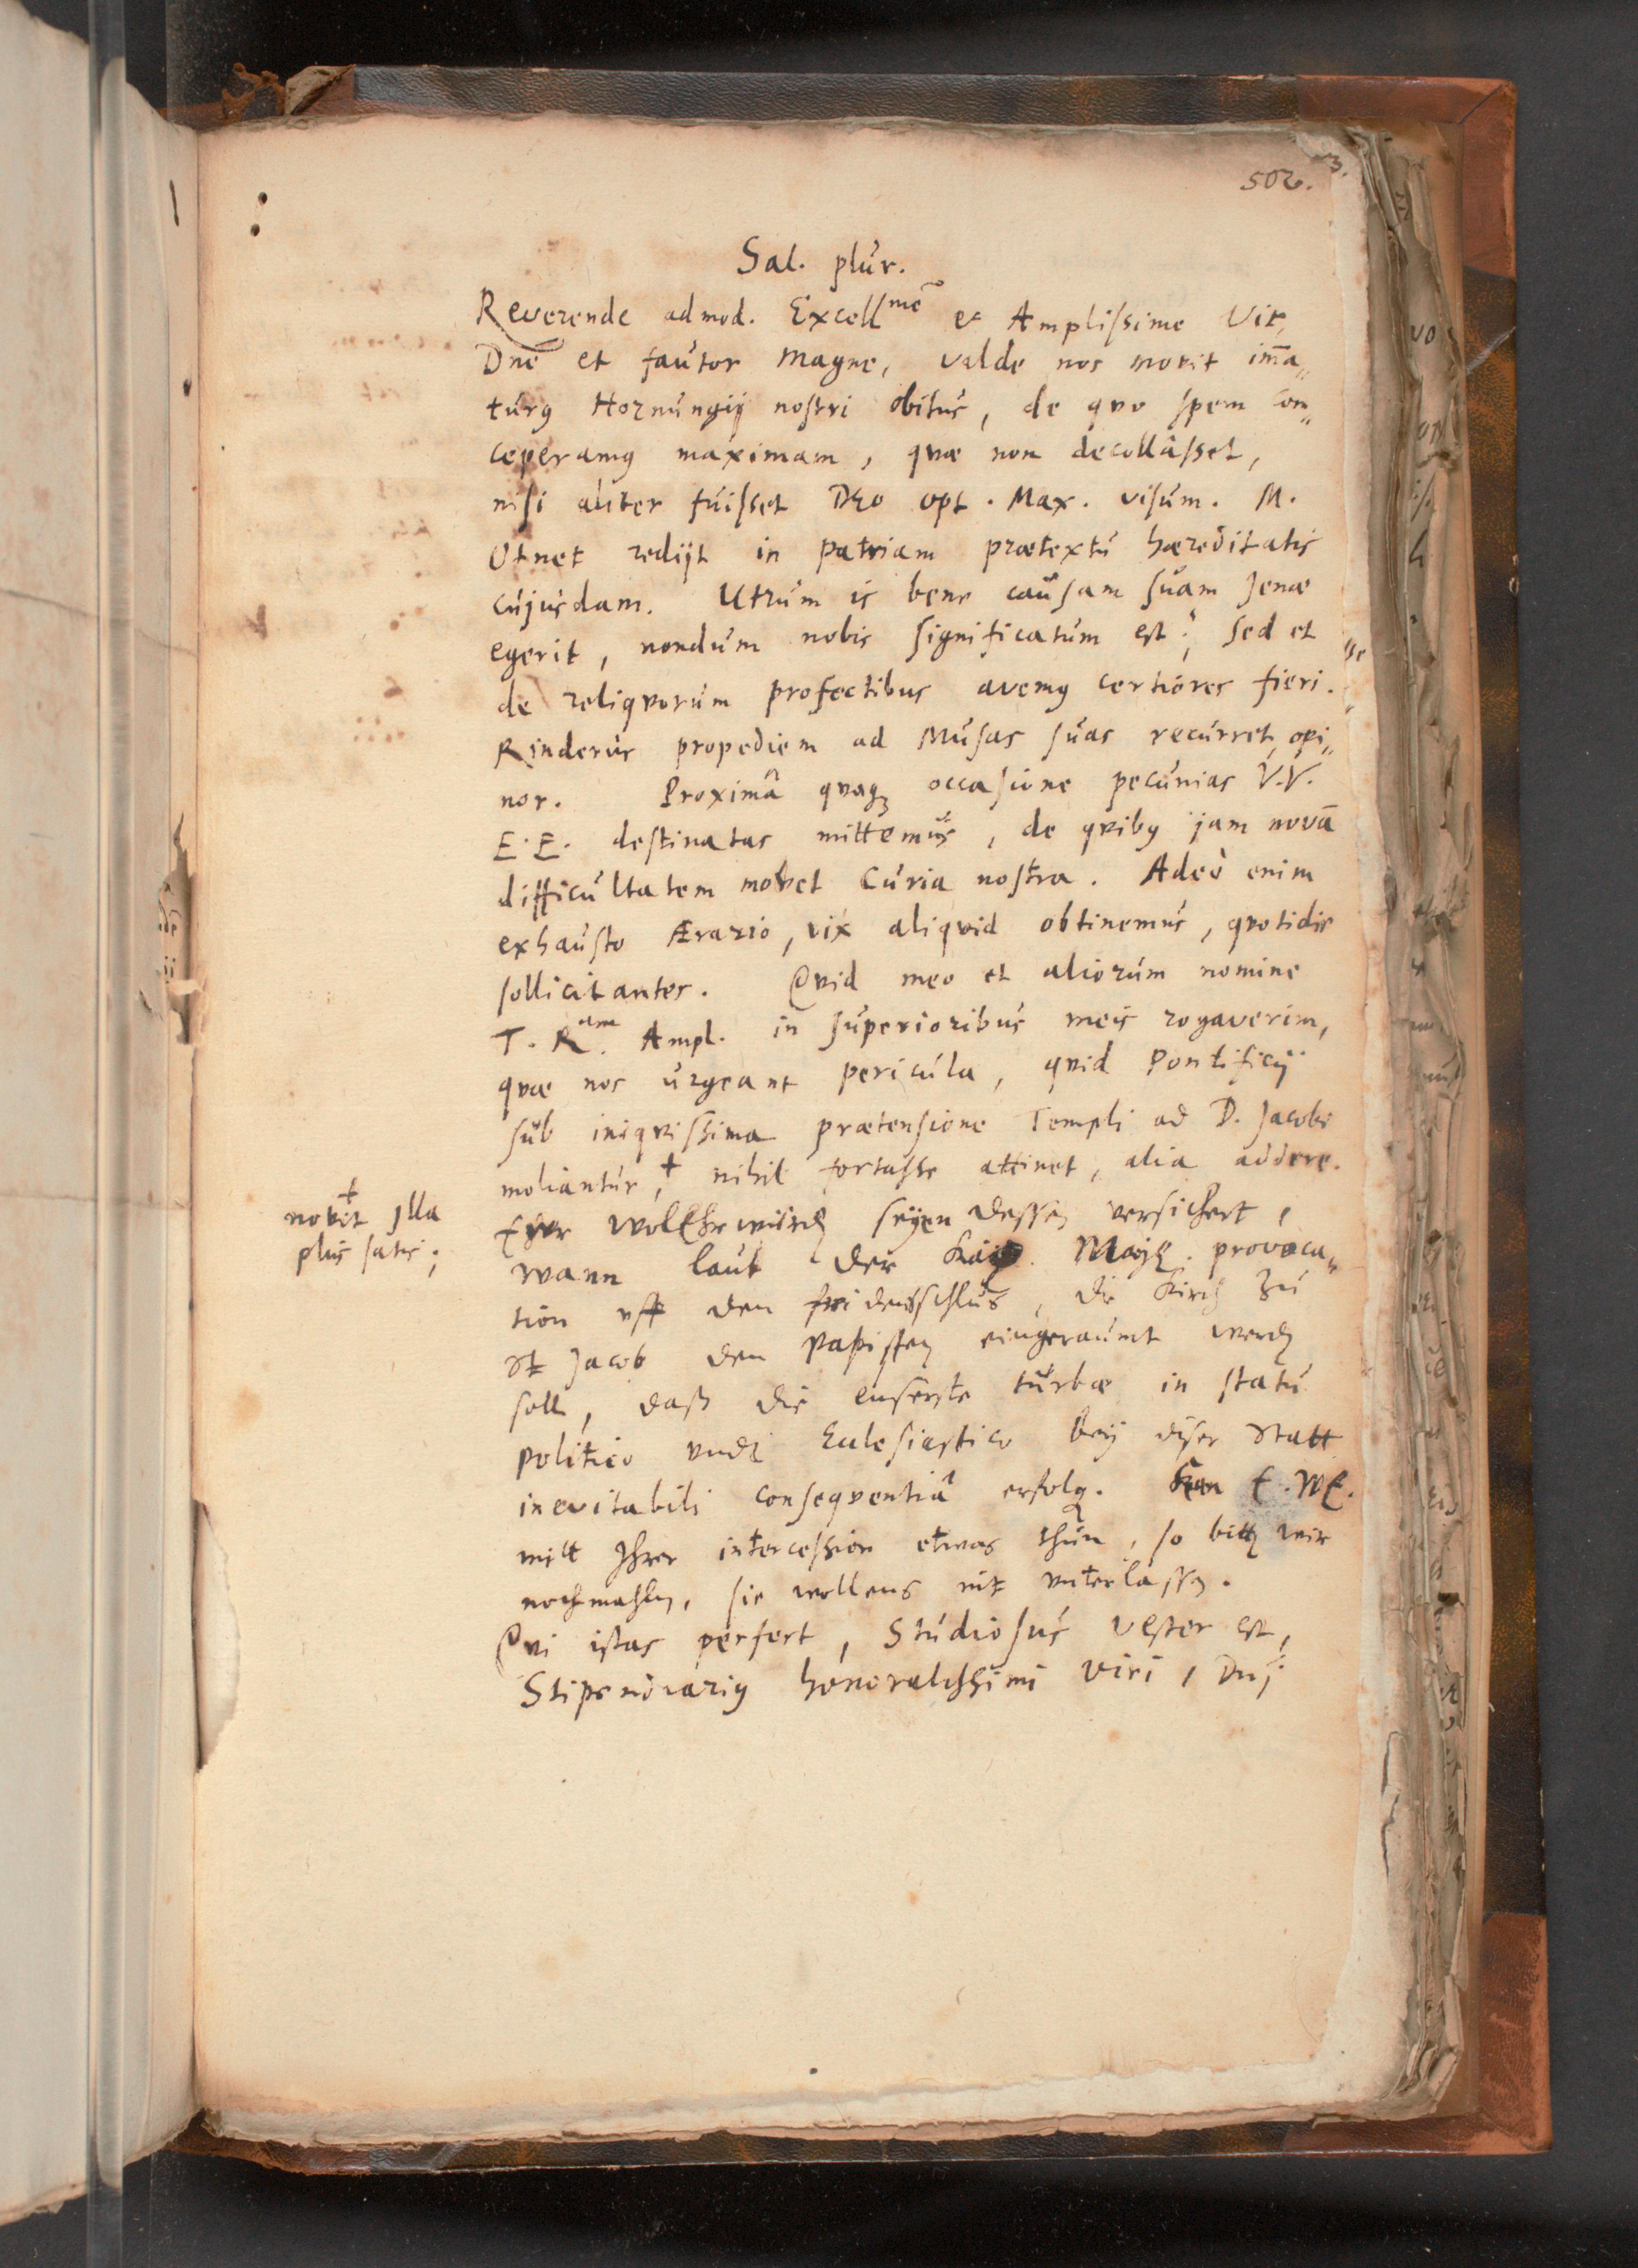 502.
Sal. plur.
Reverende admod. Excellmē et Amplissime Vir,
Dnē et fautor Magne, valde nos movit im̄a„
turꝰ Hornungij nostri obitus, de quo spem con„
ceperamꝰ maximam, quæ non decollâsset,
nisi aliter fuisset DEo opt. Max. visum. M.
redijt in patriam prætextu hæreditatis
cujusdam. Utrum is bene causam suam Jenæ
egerit, nondum nobis significatum est; sed et
de reliquorum profectibus avemꝰ certiores fieri.
Rinderus propediem ad Musas suas recurret, opi„
nor. Proximâ quaqꝫ occasione pecunias V.V.
E.E. destinatas mittemus, de quibꝰ jam novā
difficultatem movet Curia nostra. Adeò enim
exhausto Ærario, vix aliquid obtinemus, quotidie
sollicitantes. Quid meo et aliorum nomine
T. R.am Ampl. in superioribus meis rogaverim,
quæ nos urgeant pericula, quid Pontificij
sub iniquissima prætensione Templi ad D. Jacobi
moliantur, + nihil fortasse attinet, alia addere.
+
novit Illa
plus satis;
Ewr WolEhrwürd seyen dessen versichert,
wann laut der Kay. Mayt. provoca„
tion uff den fridensschlus, die Kirch zu
St Jacob den Papisten eingeraumt werdn
soll, daß die euserste turbæ in statu
politico undt Ecclesiastico bey diser Statt
inevitabili consequentiâ erfolg. Kan E. WE.
mitt Ihrer intercession etwas thun, so bittn wir
nochmahln, sie wollens nit unterlassn.
Qui istas perfert, Studiosus vester est,
Stipendiariꝰ honoratissimi viri, Dnj